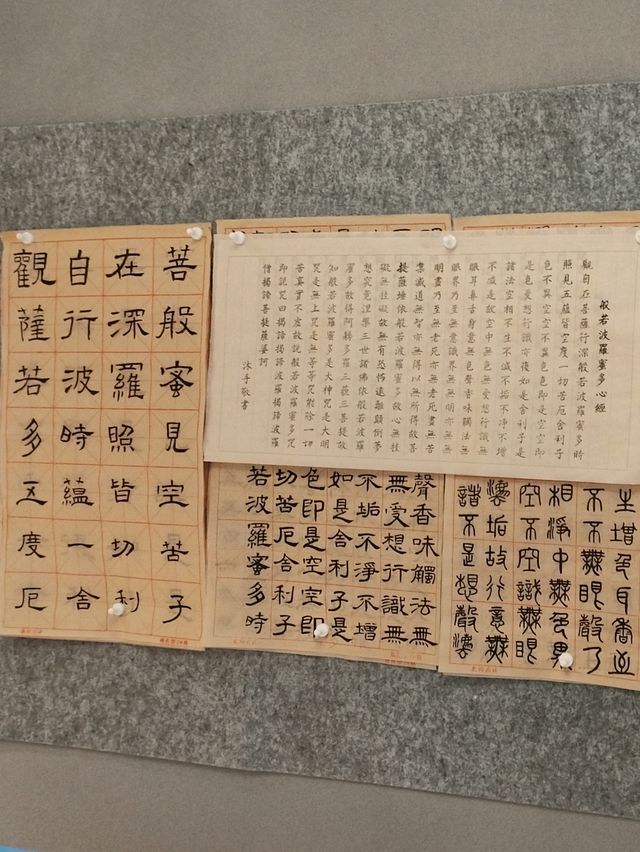 觀自在菩
薩行深般
若波羅蜜
多時照見
五蘊皆空
度一切苦
厄舍利子
般若波羅蜜多心經
觀自在菩薩行深般若波羅蜜多時
照見五蘊皆空度一切苦厄舍利子
色不異空空不異色色即是空空即
是色受想行識亦復如是舍利子是
諸法空相不生不滅不垢不淨不增
不減是故空中無色無受想行識無
眼耳鼻舌身意無色聲香味觸法無
眼界乃至無意識界無無明亦無無
明盡乃至無老死亦無老死盡無苦
集滅道無智亦無得以無所得故菩
提薩埵依般若波羅蜜多故心無挂
礙無挂礙故無有恐怖遠離顛倒夢
想究竟涅槃三世諸佛依般若波羅
蜜多故得阿耨多羅三藐三菩提故
知般若波羅蜜多是大神咒是大明
咒是無上咒是無等等咒能除一切
苦真實不虛故說般若波羅蜜多咒
即說咒曰揭諦揭諦波羅揭諦波羅
僧揭諦菩提薩婆訶
沐手敬書
聲香味觸法無
無受想行識無
不垢不淨不增
如是舍利子是
色即是空空即
切苦厄舍利子
若波羅蜜多時
諸法空相不生
不垢不淨不增
是故空中無色
想行識無眼耳
意無色聲香
法無眼界乃至